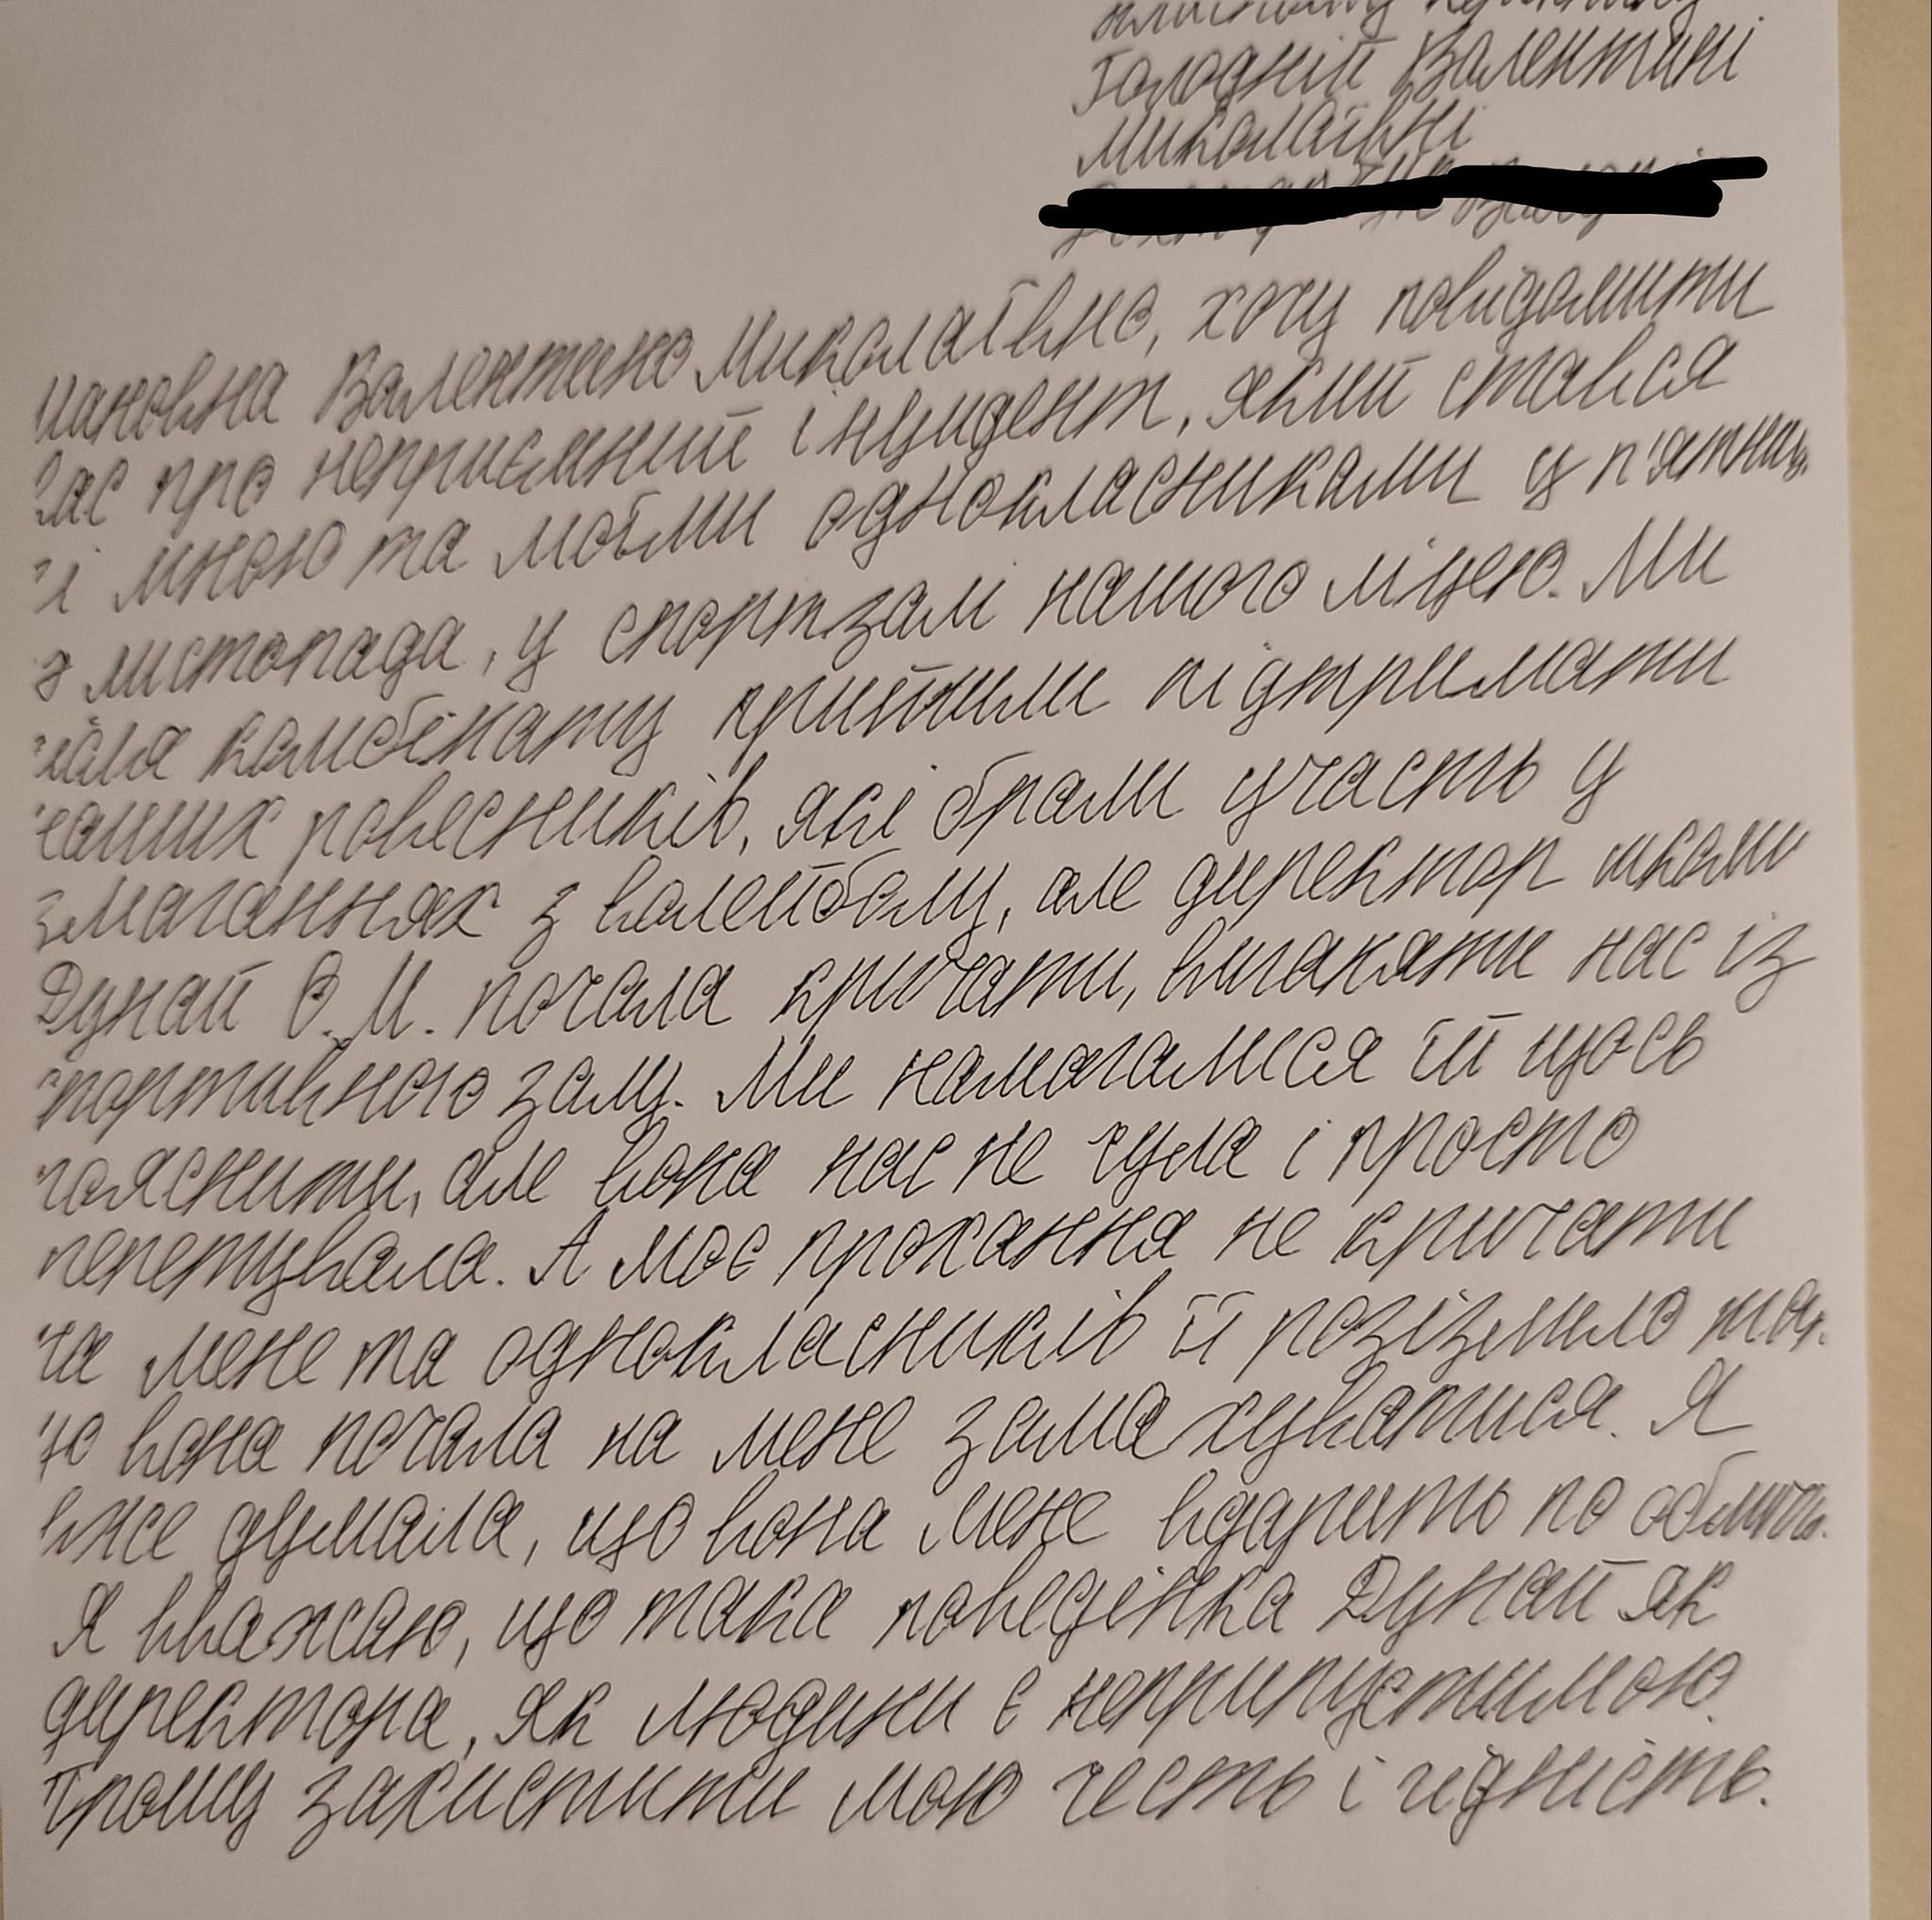 класному керівнику
Голодній Валентині
Миколаївні
Шановна Валентино Миколаївно, хочу повідомити
Вас про неприємний інцидент, який стався
зі мною та моїми однокласниками у п'ятницю
листопада, у спортзалі нашого ліцею. Ми
комбінату прийшли підтримати
наших ровесників, які брали участь у
змаганнях з волейболу, але директор школи
Дунай О. М. почала кричати, виганяти нас із
спортивного залу. Ми намагалися їй щось
пояснити, але вона нас не чула і просто
репетувала. А моє прохання не кричати
на мене та однокласників її розізлило так,
що вона почала на мене замахуватися. Я
вже думала, що вона мене вдарить по обличчі.
Я вважаю, що така поведінка Дунай як
директора, як людини є неприпустимою.
Прошу захистити мою честь і гідність.